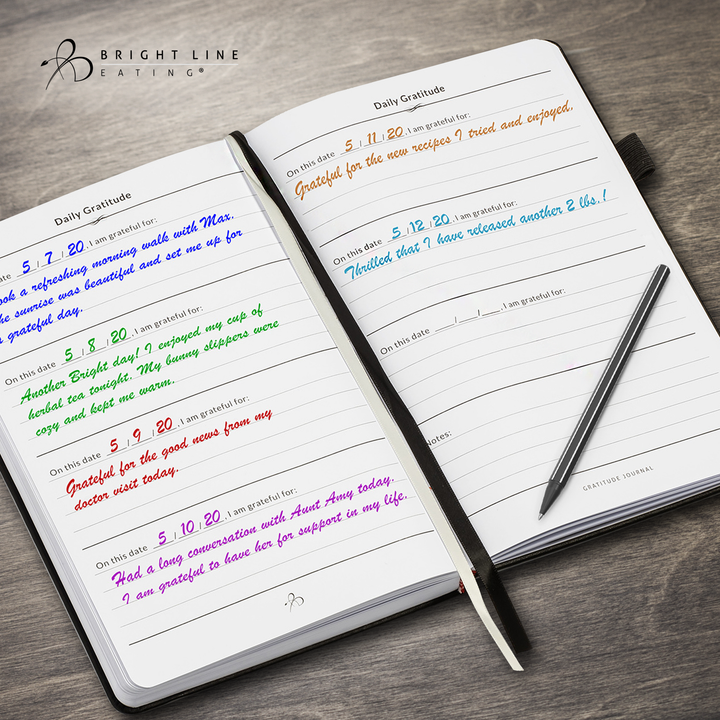 BRIGHT LINE
EATING®
Daily Gratitude
5 / 7 / 20, I am grateful for:
a refreshing morning walk with Max.
sunrise was beautiful and set me up for
grateful day.
On this date 5 / 8 / 20, I am grateful for:
Another Bright day! I enjoyed my cup of
herbal tea tonight. My bunny slippers were
cozy and kept me warm.
On this date 5 / 9 / 20, I am grateful for:
Grateful for the good news from my
doctor visit today.
On this date 5 / 10 / 20, I am grateful for:
Had a long conversation with Aunt Amy today.
I am grateful to have her for support in my life.
Daily Gratitude
On this date 5 / 11 / 20, I am grateful for:
Grateful for the new recipes I tried and enjoyed.
On this date 5 / 12 / 20, I am grateful for:
Thrilled that I have released another 2 lbs.!
On this date __/__/__, I am grateful for:
Notes:
GRATITUDE JOURNAL